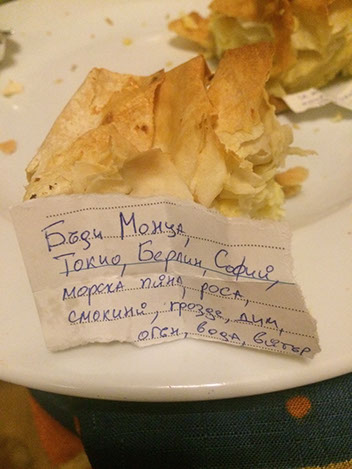 Бъди Монца,
Токио, Берлин, София,
морска пяна, роса,
смокини, грозде, дим,
огън, вода, вятър